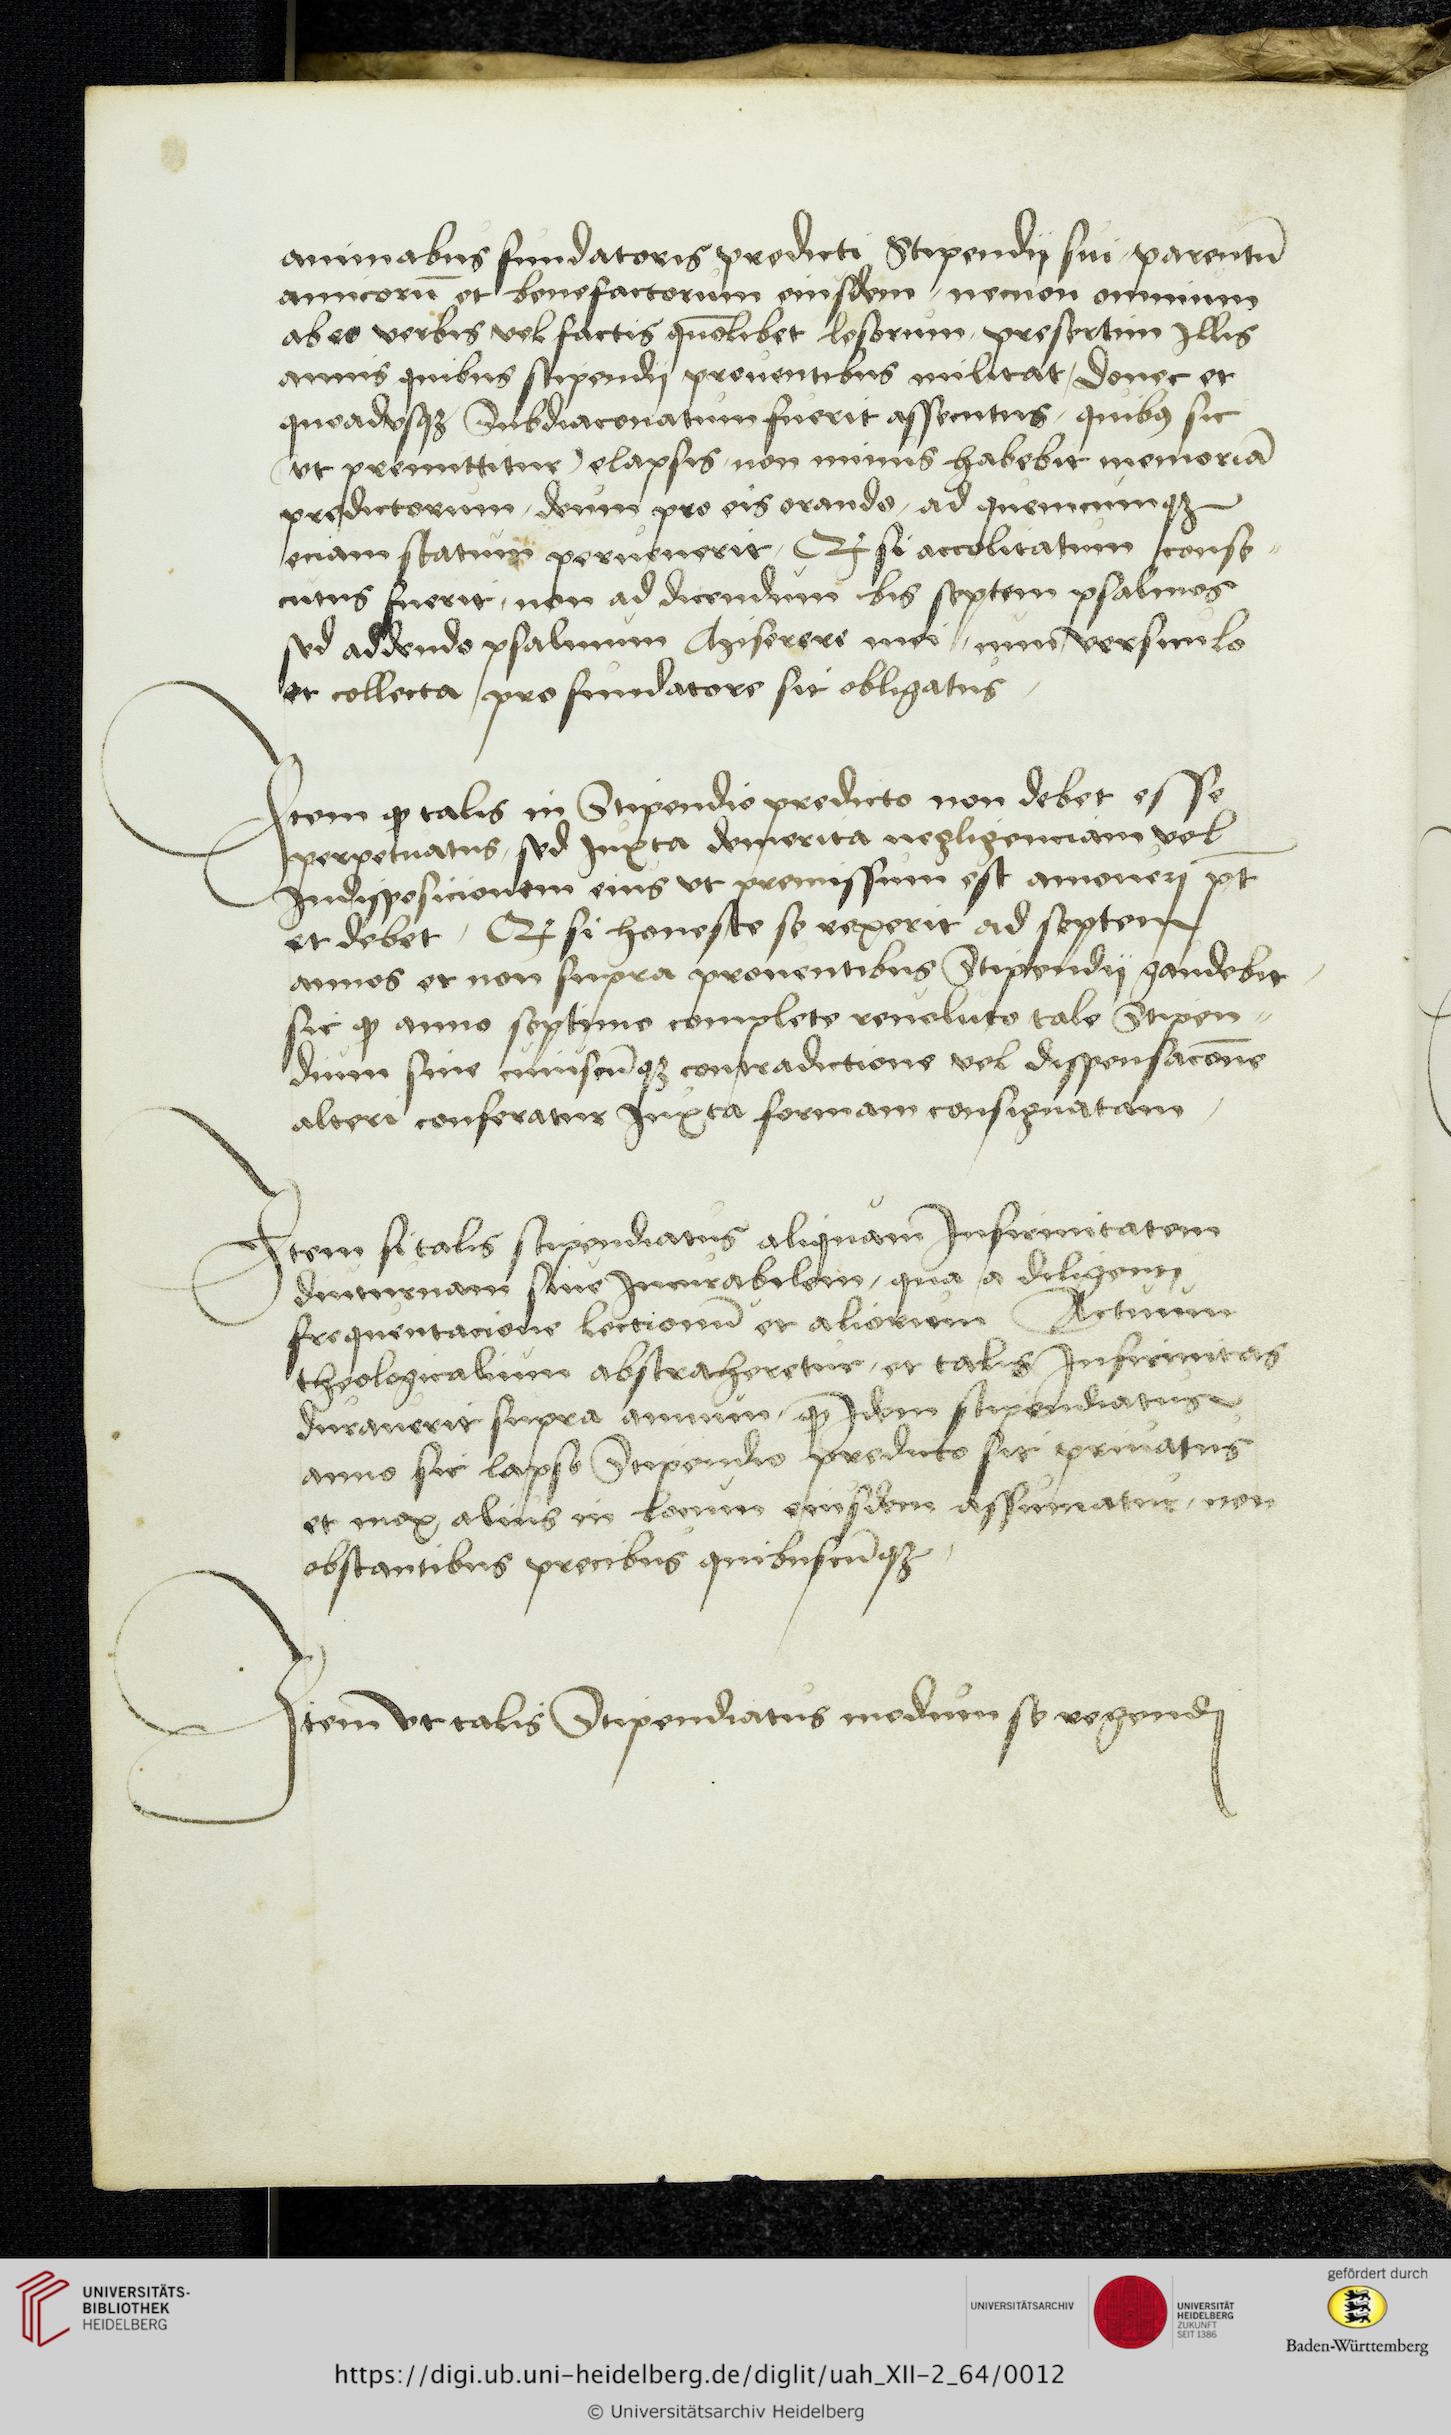 animabus fundatoris predicti Stipendij sui, parentū
amicorū et benefactorum eiusdem, necnon omnium
ab eo verbis vel factis quōlibet lesorum, presertim Illis
annis quibus stipendij prouentibus militat, Donec et
quoadvsqꝫ Subdiaconatum fuerit assecutus, quibꝰ sic
(vt premittitur) elapsis, non minus habebit memoriā
predictorum, deum pro eis orando, ad quemcumqꝫ
eciam statum peruenerit, Et si accolitatum conse„
cutus fuerit, non ad dicendum bis septem psalmos
sed addendo psalmum Miserere mei, cum versiculo
et collecta pro fundatore sit obligatus,
Item ꝙ talis in Stipendio predicto non debet esse
perpetuatus, sed Juxta demerita negligenciam vel
Indisposicionem eius vt premissum est amoueri pt̄
et debet, Et si honeste se rexerit ad septem
annos et non supra prouentibus Stipendij gaudebit,
sic ꝙ anno septimo complete reuoluto tale Stipen„
dium sine cuiuscūqꝫ contradictione vel dispensacōne
alteri conferatur Juxta formam consignatam,
Item si talis stipendiatus aliquam Infirmitatem
diuturnam siue Incurabilem, qua a diligenti
frequentacione lectionū et aliorum Actuum
theologicalium abstraheretur, et talis Infirmitas
durauerit supra annum, ꝙ Idem stipendiatus
anno sic lapso Stipendio predicto sit priuatus
et mox alius in locum eiusdem assumatur, non
obstantibus precibus quibuscūqꝫ,
Item vt talis Stipendiatus modum se regendi
UNIVERSITÄTS-
BIBLIOTHEK
HEIDELBERG
UNIVERSITÄTSARCHIV
UNIVERSITÄT
HEIDELBERG
ZUKUNFT
SEIT 1386
gefördert durch
Baden-Württemberg
https://digi.ub.uni-heidelberg.de/diglit/uah_XII-2_64/0012
© Universitätsarchiv Heidelberg